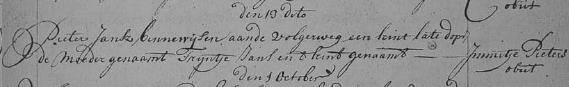 obiit
den 13 dito
Pieter Jansz binnewijsen aande Volgerweg een kint late dopē
de Moeder genaamt Trijntje Jans en 't kint genaamt — Jmmitje Pieters
obiit
den 1 October